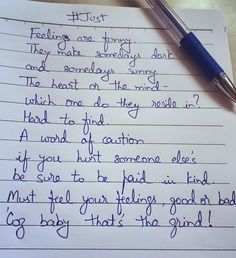 #Just
Feelings are funny
They make somedays dark
and somedays sunny.
The heart or the mind -
which one do they reside in?
Hard to find.
A word of caution
if you hurt someone else's
be sure to be paid in kind.
Must feel your feelings, good or bad
'Coz baby that's the grind!